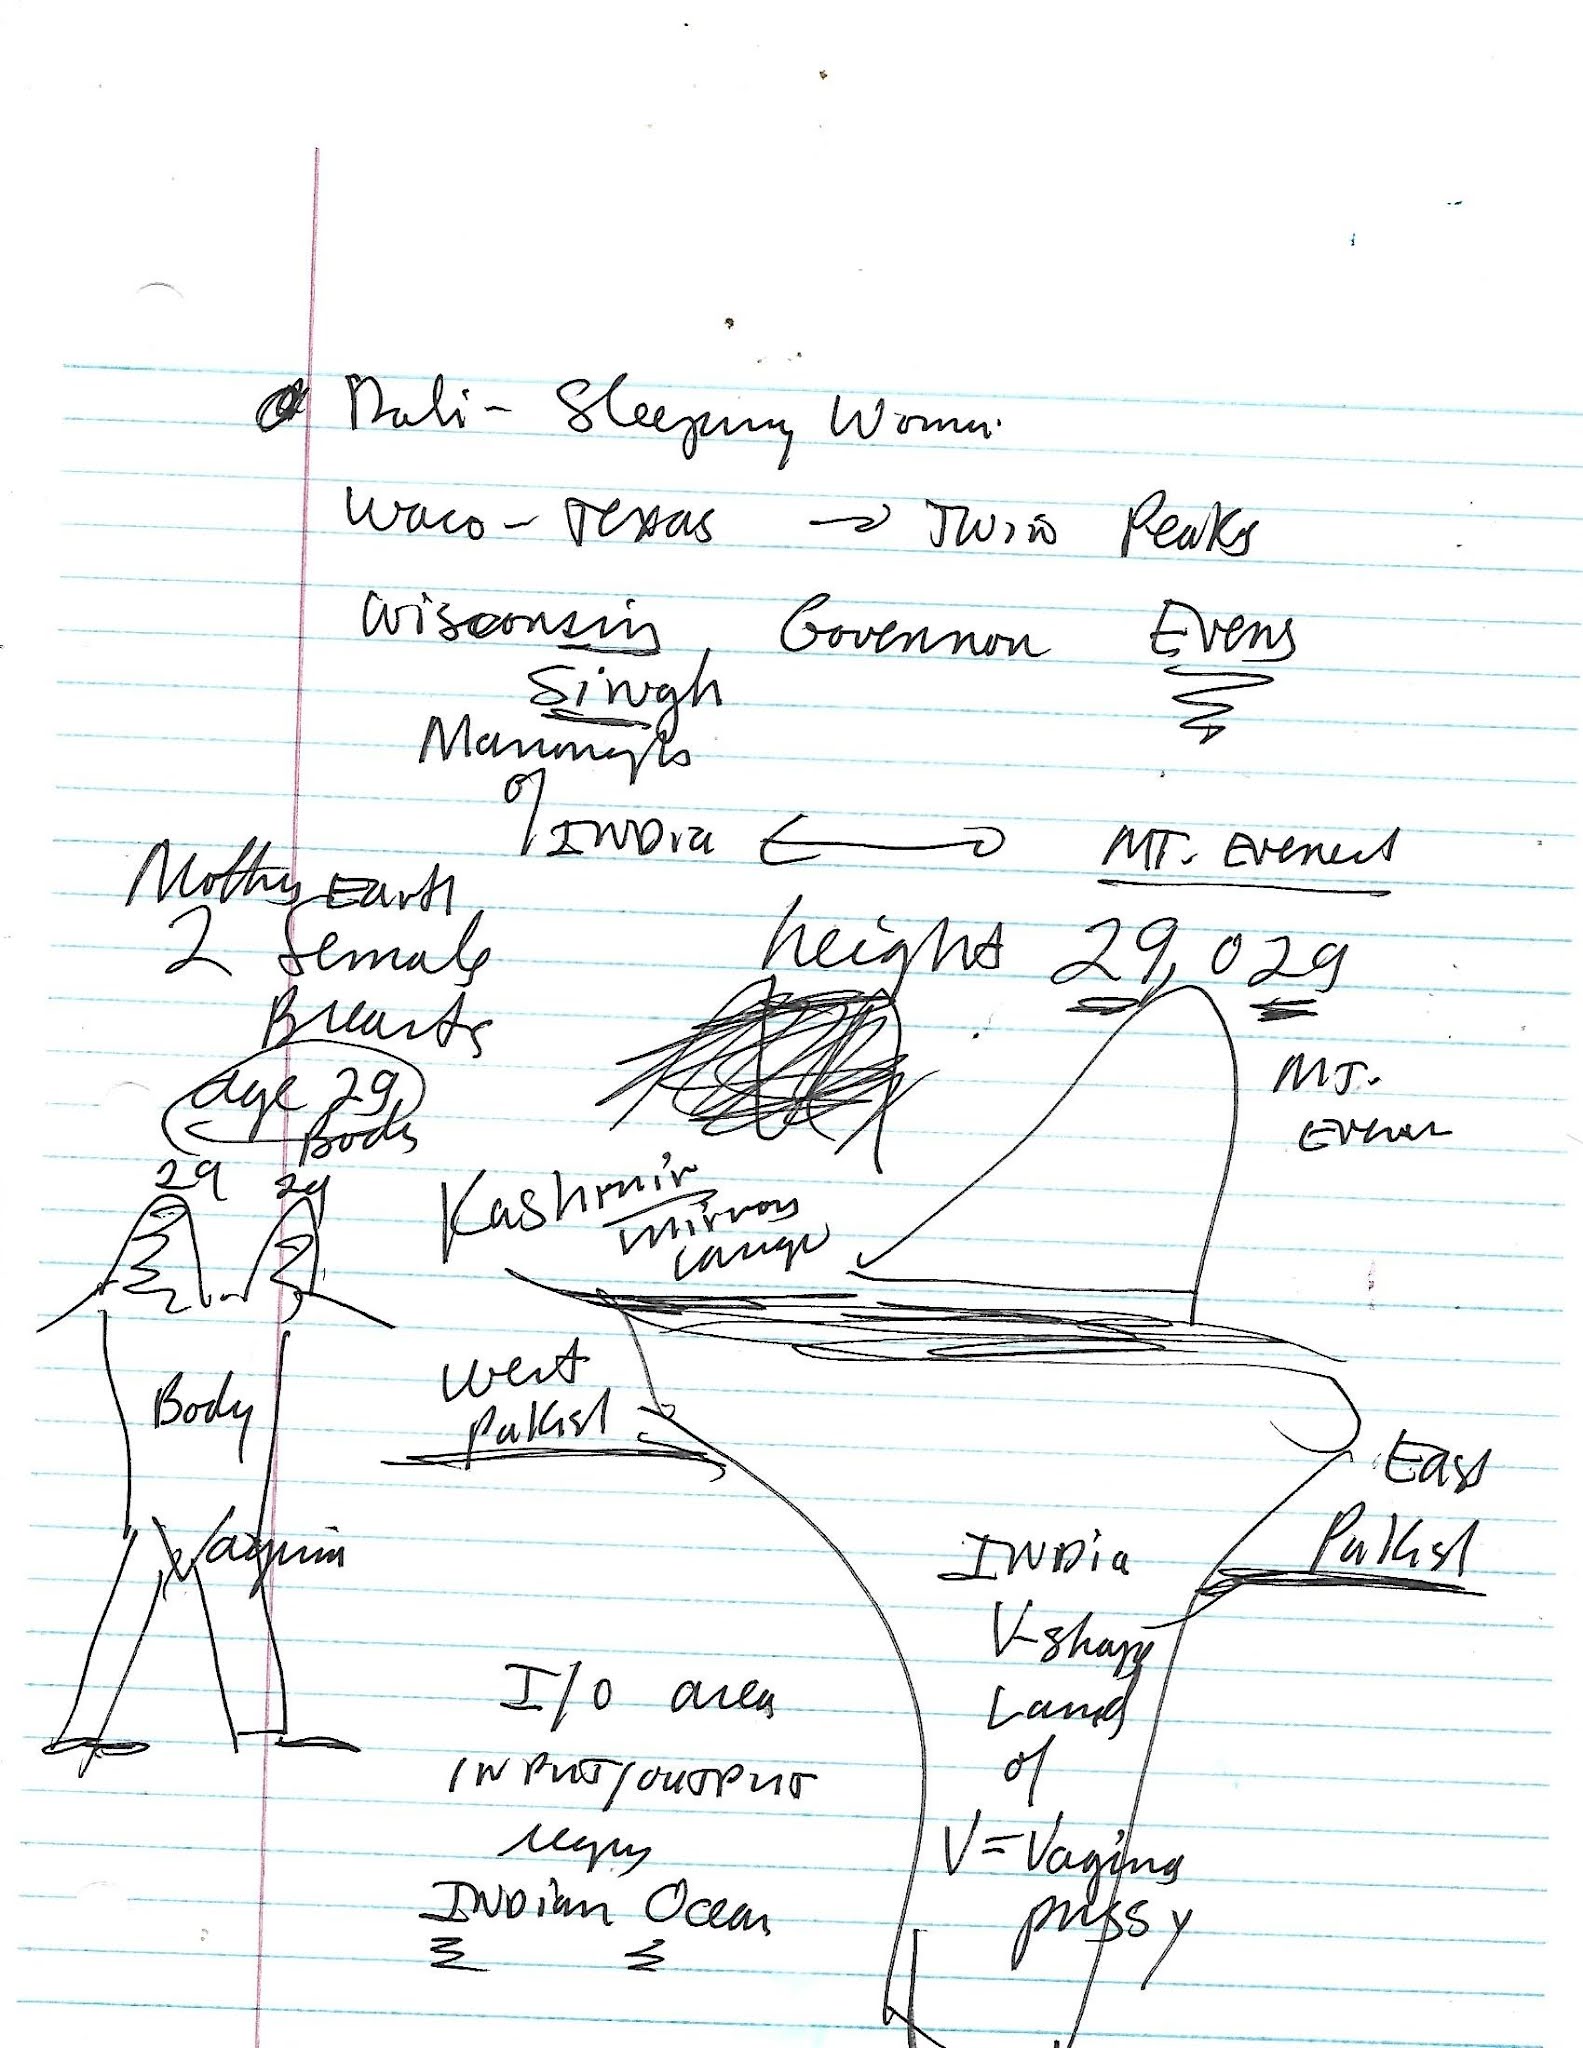 Dali - Sleeping Woman
Waco - Texas → Twin Peaks
Wisconsin Governor Evers
Singh
of
INDia ↔ MT. Everest
Mother Earth
2 female
Breasts
height 29,029
age 29
Body
29 29
MT.
Kashmir
mirrors
West
Pakist
Body
East
Pakist
Vagina
INDia
V-shape
Land
of
I/O area
INPUT/OUTPUT
V=Vagina
pussy
INDian Ocean